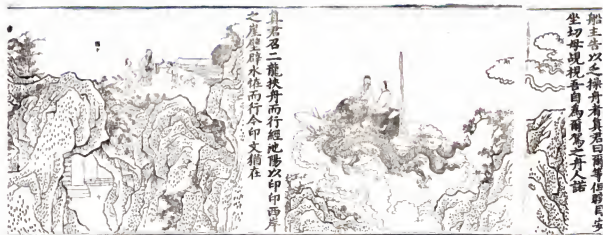 船主告以乏操舟者真君曰爾等但瞑目安
坐切毋覘視吾自為爾駕之舟人諾
真君召二龍挾舟而行經池陽以印印西岸
之崖壁辟水怪而行今印文猶在